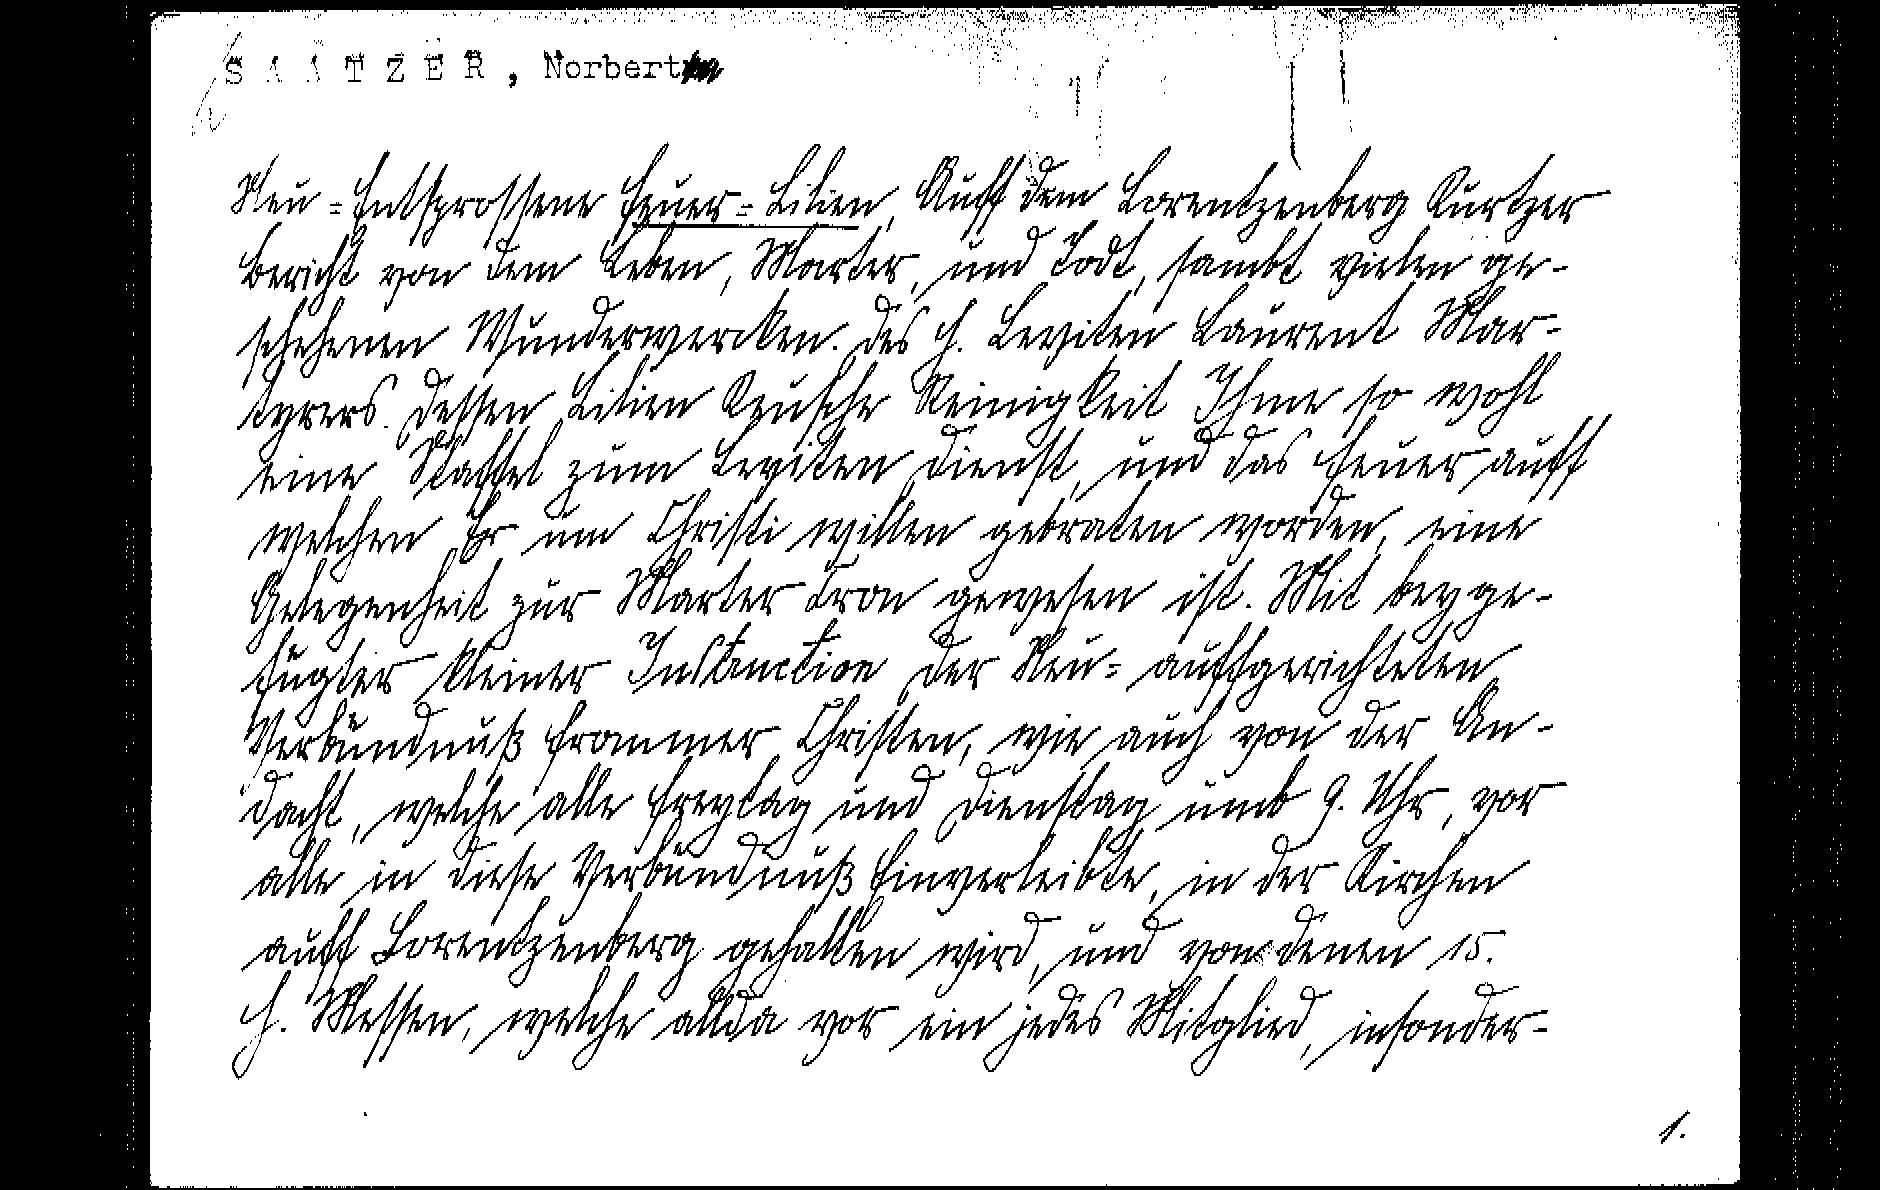 SAATZER, Norbert
Neu=Entsprossene Feuer=Lilien, Auff dem Lorentzenberg Kurtzer
bericht von dem Leben, Marter, und Todt, sambt vielen ge-
schehenen Wunderwercken. des H. Leviten Laurent Mar-
tyrers. Dessen Lilien Keusche Reinigkeit Ihme so wohl
eine Staffel zum Leviten Dienst, und das Feuer auff
welchen Er um Christi willen gebraten worden, eine
Gelegenheit zur Marter Cron gewesen ist. Mit beyge-
fügter kleiner Instanction der Neu=auffgerichteten
Verbündnuß frommer Christen, wie auch von der An-
dacht, welche alle Freytag und Dienstag umb 9. Uhr, vor
alle in diese Verbündnuß Einverleibte, in der Kirchen
auff Lorentzenberg gehalten wird, und von denen 15.
H. Messen, welche allda vor ein jedes Mitglied, insonder-
1.